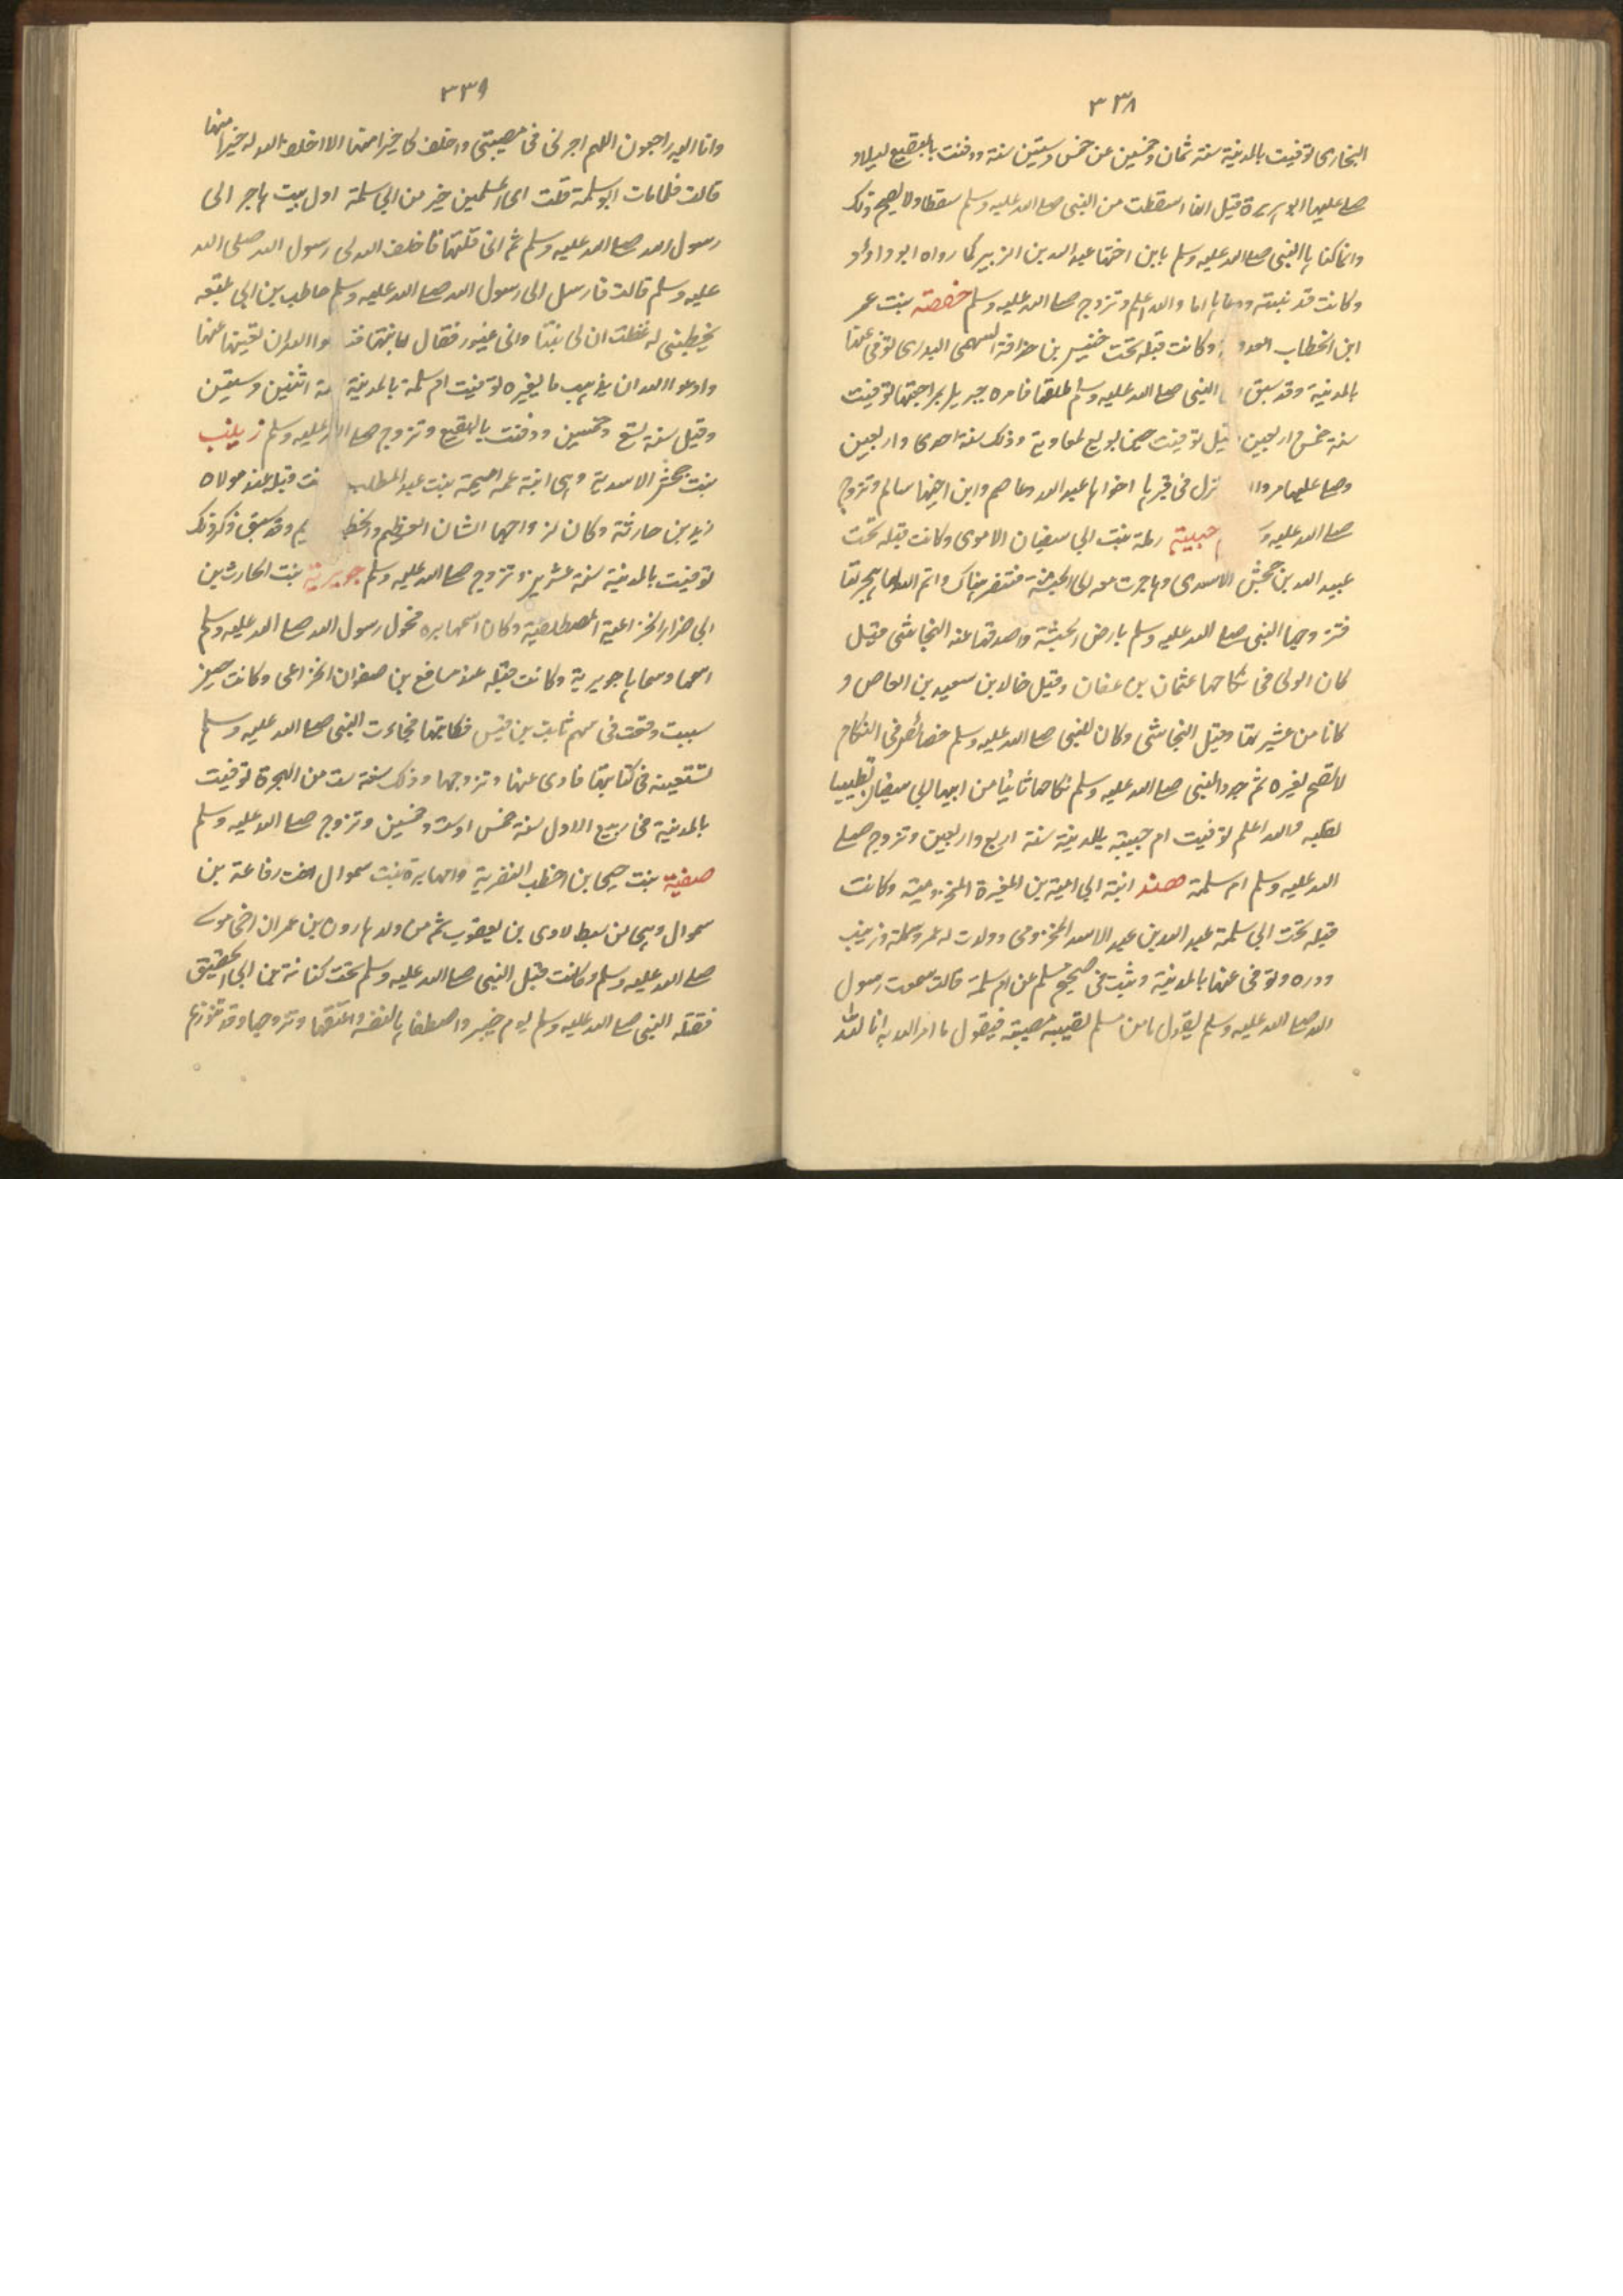 ٣٣٨
البخارى توفيت بالمدينة سنة ثمان وخمسين عن خمس وستين سنة ودفنت بالبقيع ليلا و
صلى عليها ابو هريرة قيل انها اسقطت من النبى صلى الله عليه وسلم سقطا ولا يصح وذلك
وانما كناها النبى صلى الله عليه وسلم بابن اختها عبد الله بن الزبير كما رواه ابو داؤد
وكانت قد تبنته ودعاها اما والله اعلم وتزوج صلى الله عليه وسلم حفصة بنت عمر
ابن الخطاب وكانت قبله تحت خنيس بن حذافة السهمى البدرى توفى عنها
بالمدينة وقد سبق النبى صلى الله عليه وسلم طلقها فامره جبريل بمراجعتها توفيت
سنة خمس واربعين توفيت حين بويع لمعاوية وذلك سنة احدى واربعين
وصلى عليها مروان نزل فى قبرها اخواها عبد الله وعاصم وابن اخيها سالم وتزوج
صلى الله عليه حبيبة رملة بنت ابى سفيان الاموى وكانت قبله تحت
عبيد الله بن جحش الاسدى وهاجرت معه الى الحبشة فتنصر هناك واتم الله لها هجرتها
فتزوجها النبى صلى الله عليه وسلم بارض الحبشة واصدقها عنه النجاشى قيل
كان الولى فى نكاحها عثمان بن عفان وقيل خالد بن سعيد بن العاص و
كانا من عشيرتها وقيل النجاشى وكان للنبى صلى الله عليه وسلم خصائص فى النكاح
لا تصح لغيره ثم جدد النبى صلى الله عليه وسلم نكاحها ثانيا من ابيها ابى سفيان تطييبا
لقلبه والله اعلم توفيت ام حبيبة بالمدينة سنة اربع واربعين وتزوج صلى
الله عليه وسلم ام سلمة هند ابنة ابى امية بن المغيرة المخزومية وكانت
قبله تحت ابى سلمة عبد الله بن عبد الاسد المخزومى وولدت له عمر وسلمة وزينب
ودره وتوفى عنها بالمدينة وثبت فى صحيح مسلم عن ام سلمة قالت سمعت رسول
الله صلى الله عليه وسلم يقول ما من مسلم تصيبه مصيبة فيقول ما امر الله به انا لله
٣٣٩
وانا اليه راجعون اللهم اجرنى فى مصيبتى واخلف لى خيرا منها الا اخلف الله له خيرا منها
قالت فلما مات ابو سلمة قلت اى المسلمين خير من ابى سلمة اول بيت هاجر الى
رسول الله صلى الله عليه وسلم ثم انى قلتها فاخلف الله لى رسول الله صلى الله
عليه وسلم قالت فارسل الى رسول الله صلى الله عليه وسلم حاطب بن ابى بلتعه
يخطبنى له فقلت ان لى بنتا وانى غيور فقال اما بنتها الله ان يغنيها عنها
وادعو الله ان يذهب بالغيره توفيت ام سلمة بالمدينة اثنين وستين
وقيل سنة تسع وخمسين ودفنت بالبقيع وتزوج صلى الله عليه وسلم زينب
بنت جحش الاسدية وهى ابنة عمه اميمة بنت عبد المطلب قبله عند مولاه
زيد بن حارثة وكان لزواجها الشان العظيم وقد سبق ذكر ذلك
توفيت بالمدينة سنة عشرين وتزوج صلى الله عليه وسلم جويرية بنت الحارث بن
ابى ضرار الخزاعية المصطلقية وكان اسمها بره فحول رسول الله صلى الله عليه وسلم
اسمها وسماها جويرية وكانت قبله عند مسافع بن صفوان الخزاعى وكانت حين
سبيت وقعت فى سهم ثابت بن قيس فكاتبها فجاءت النبى صلى الله عليه وسلم
تستعينه فى كتابتها فادى عنها وتزوجها وذلك سنة ست من الهجرة توفيت
بالمدينة فى ربيع الاول سنة خمس او ست وخمسين وتزوج صلى الله عليه وسلم
صفية بنت حيى بن اخطب النضرية وامها برة بنت سموال اخت رفاعة بن
سموال وهى من سبط لاوى بن يعقوب ثم من ولد هارون بن عمران اخى موسى
صلى الله عليه وسلم وكانت قبل النبى صلى الله عليه وسلم تحت كنانة بن ابى الحقيق
فقتله النبى صلى الله عليه وسلم يوم خيبر واصطفاها لنفسه واعتقها وتزوجها وقد